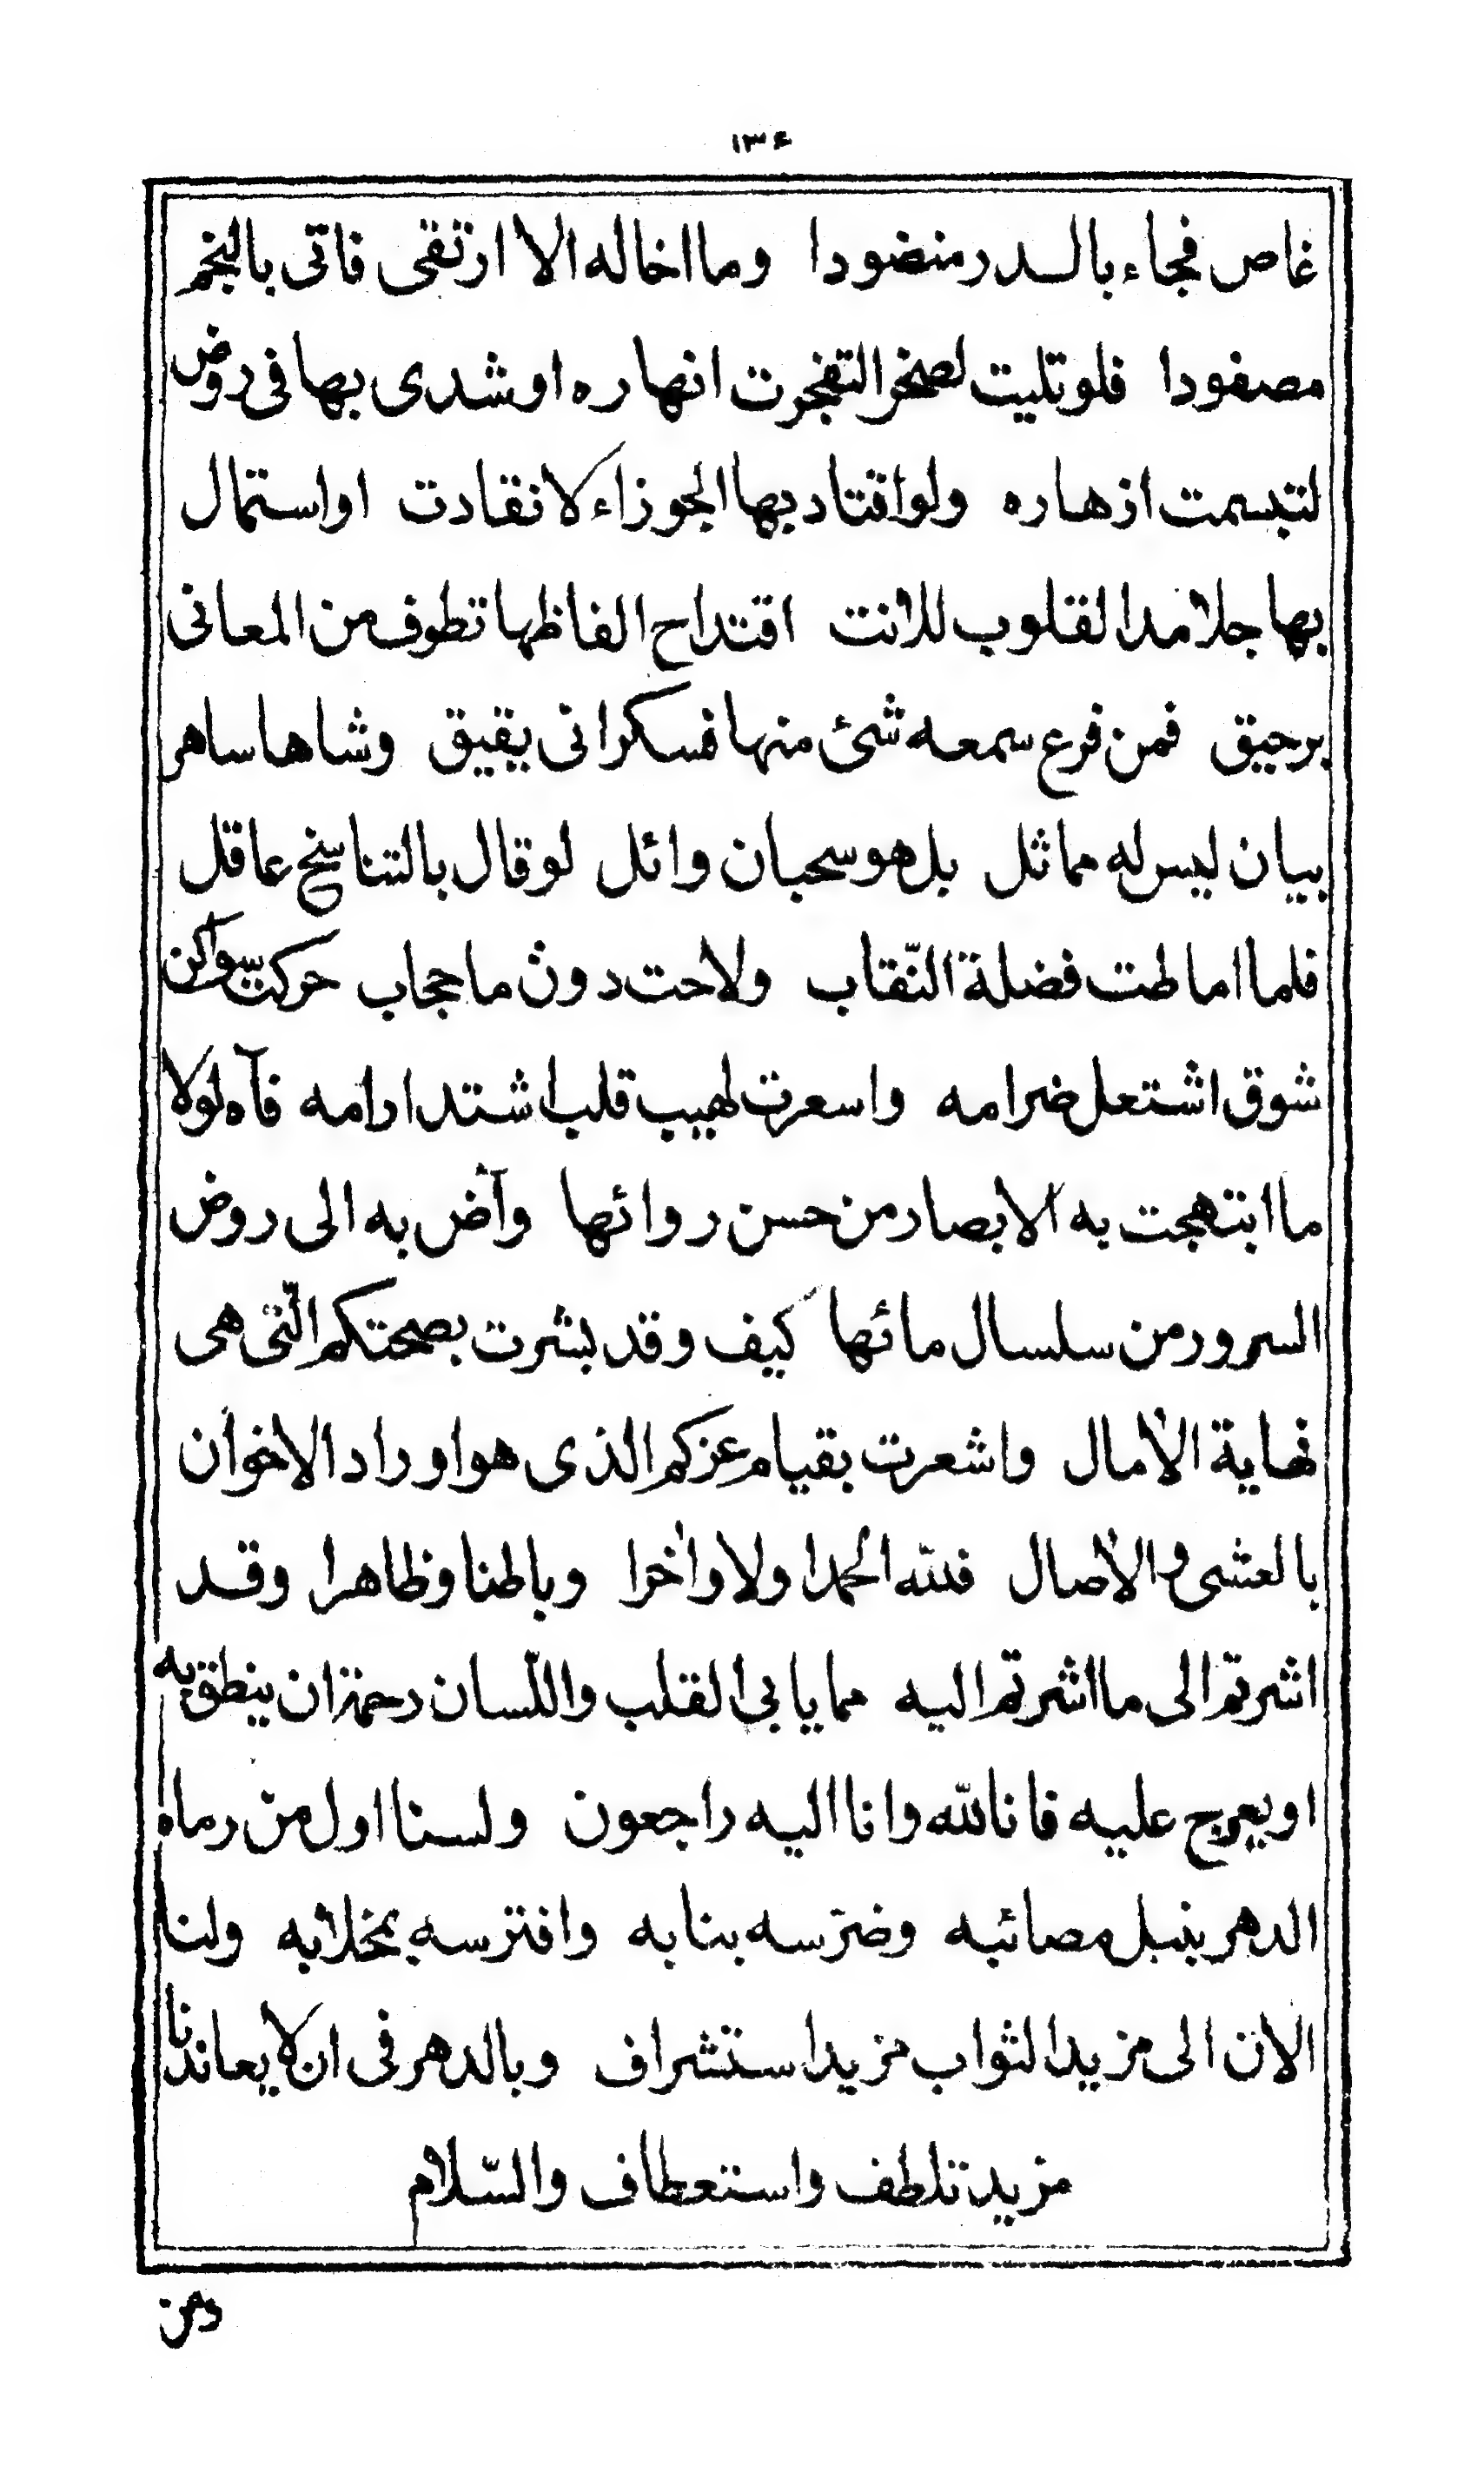 ١٣٤
غاص فجاء بالدر منضودا وما اخاله الا ارتقى فاتى بالنجم
مصفودا فلو تليت لصخر التفجرت انهاره او شدى بها فى روض
لتبسمت ازهاره ولو اقتاد بها الجوزاء لانقادت او استمال
بها جلامد القلوب للانت اقتداح الفاظها تطوف من المعانى
برحيق فمن قرع سمعه شئ منها فسكرانى يقيق وشاها ساهر
بيان ليس له مماثل بل هو سحبان وائل لو قال بالتناسخ عاقل
فلما اماطت فضلة النّقاب ولاحت دون ما حجاب حركت سواكن
شوق اشتعل ضرامه واسعرت لهيب قلب اشتد ارامه فآه لولا
ما ابتهجت به الابصار من حسن روائها وآض به الى روض
السرور من سلسال مائها كيف وقد بشرت بصحتكم الّتى هى
نهاية الأمال واشعرت بقيام عزكم الذى هو اوراد الاخوان
بالعشى والأصال فللّه الحمد اولا واخرا وباطنا وظاهرا وقد
اشرتم الى ما اشرتم اليه مما يابى القلب واللّسان رحمة ان ينطق به
او يعرج عليه فانا لله وانا اليه راجعون ولسنا اول من رماه
الدهر بنبل مصائبه وضرّسه بنابه وافترسه بمخلابه ولنا
الان الى مزيد الثواب مزيد استشراف وبالدهر فى ان لا يعاندنا
مزيد تلطف واستعطاف والسّلام
ومن